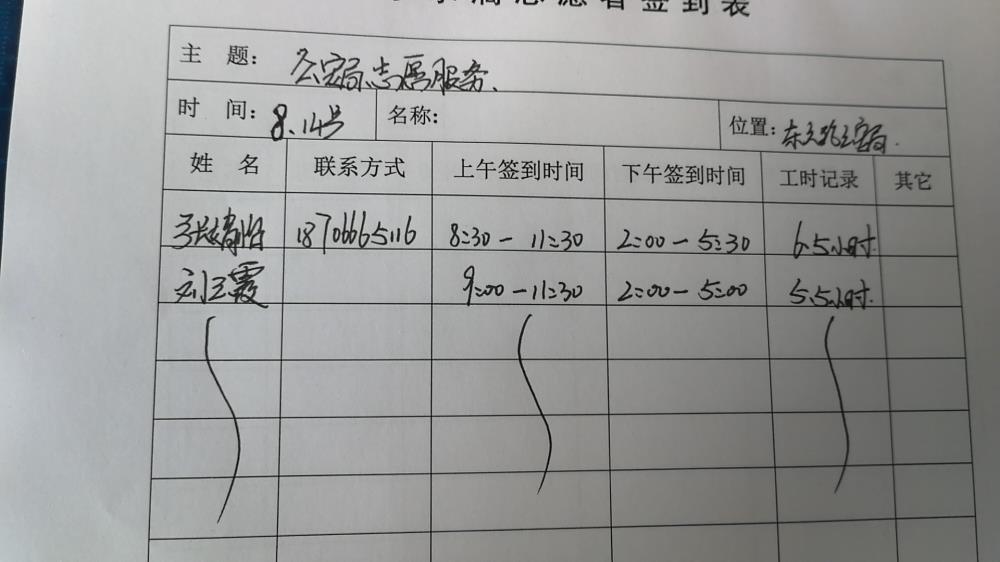 志愿者签到表
主 题: 公安局志愿服务、
时 间: 8.14号 名称: 位置:
姓 名 联系方式 上午签到时间 下午签到时间 工时记录 其它
18706665116 8:30 - 11:30 2:00 - 5:30 6.5小时
刘卫霞 9:00 - 11:30 2:00 - 5:00 5.5小时.